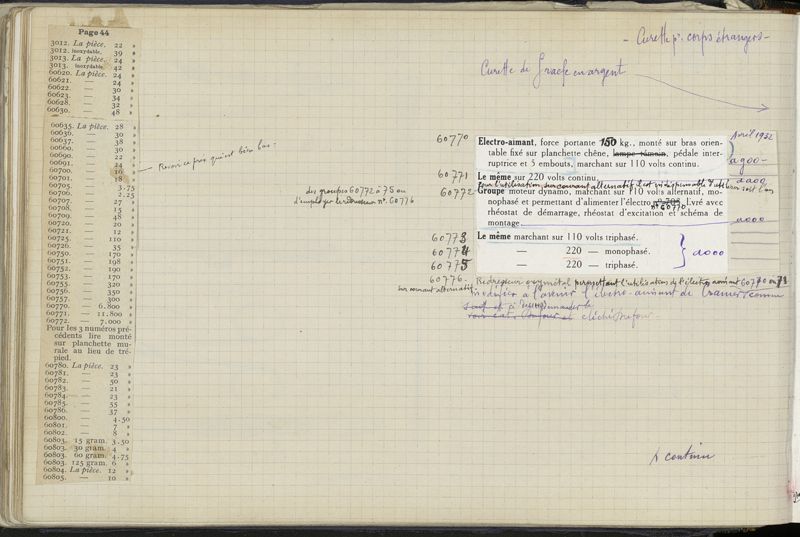 Page 44
3012. La pièce. 22 »
3012. inoxydable. 39 »
3013. La pièce. 24 »
3013. inoxydable. 42 »
60620. La pièce. 24 »
60621. — 24 »
60622. — 30 »
60623. — 34 »
60628. — 32 »
60630. — 48 »
60635. La pièce. 28 »
60636. — 30 »
60637. — 38 »
60660. — 30 »
60690. — 22 »
60691. — 24 »
60700. — 16 »
60701. — 18 »
60705. — 3.75
60706. — 2.25
60707. — 27 »
60708. — 15 »
60709. — 48 »
60720. — 20 »
60721. — 12 »
60725. — 110 »
60726. — 35 »
60750. — 170 »
60751. — 198 »
60752. — 190 »
60753. — 170 »
60755. — 320 »
60756. — 350 »
60757. — 300 »
60770. — 6.800 »
60771. — 11.800 »
60772. — 7.000 »
Pour les 3 numéros pré-
cédents lire monté
sur planchette mu-
rale au lieu de tré-
pied.
60780. La pièce. 23 »
60781. — 23 »
60782. — 50 »
60783. — 21 »
60784. — 23 »
60785. — 35 »
60786. — 37 »
60800. — 4.50
60801. — 7 »
60802. — 8 »
60803. 15 gram. 3.50
60803. 30 gram. 4 »
60803. 60 gram. 4.75
60803. 125 gram. 6 »
60804. La pièce. 12 »
60805. — 10 »
- Curette pr. corps étrangers -
Curette de Graefe en argent
Avril 1932
60770 Electro-aimant, force portante 150 kg., monté sur bras orien-
table fixé sur planchette chêne, lampe témoin, pédale inter-
ruptrice et 5 embouts, marchant sur 110 volts continu.
60771 Le même sur 220 volts continu.
pour l'utilisation sur courant alternatif il est indispensable d'
des groupes 60772 à 75 ou
d'employer le redresseur n°. 60776
60772 Groupe moteur dynamo, marchant sur 110 volts alternatif, mo-
nophasé et permettant d'alimenter l'électro n° 60770. Livré avec
rhéostat de démarrage, rhéostat d'excitation et schéma de
montage.
60773 Le même marchant sur 110 volts triphasé.
60774 — 220 — monophasé.
60775 — 220 — triphasé.
60776. Redresseur oxymétal permettant l'utilisation de l'électro aimant 60770 ou 71
sur courant alternatif
à continu